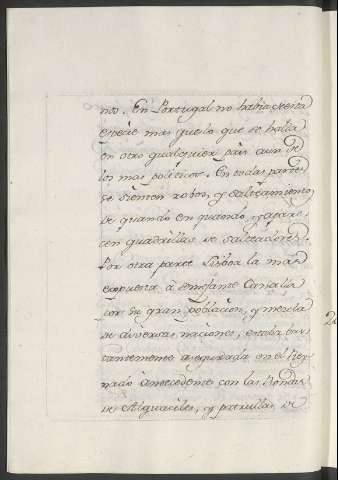 nto. En Portugal no habia de esta
especie mas que lo que se halla
en otro qualquier pais aun de
los mas politicos. En todas partes
se sienten robos, y salteamientos
de quando en quando, y apare-
cen quadrillas de salteadores.
Por otra parte Lisboa la mas
expuesta à semejante Canalla
por su gran poblacion, y mezcla
de diversas naciones, estaba bas-
tantemente asegurada en el Rey-
nado antecedente con las Rondas
de Alguaciles, y patrullas de